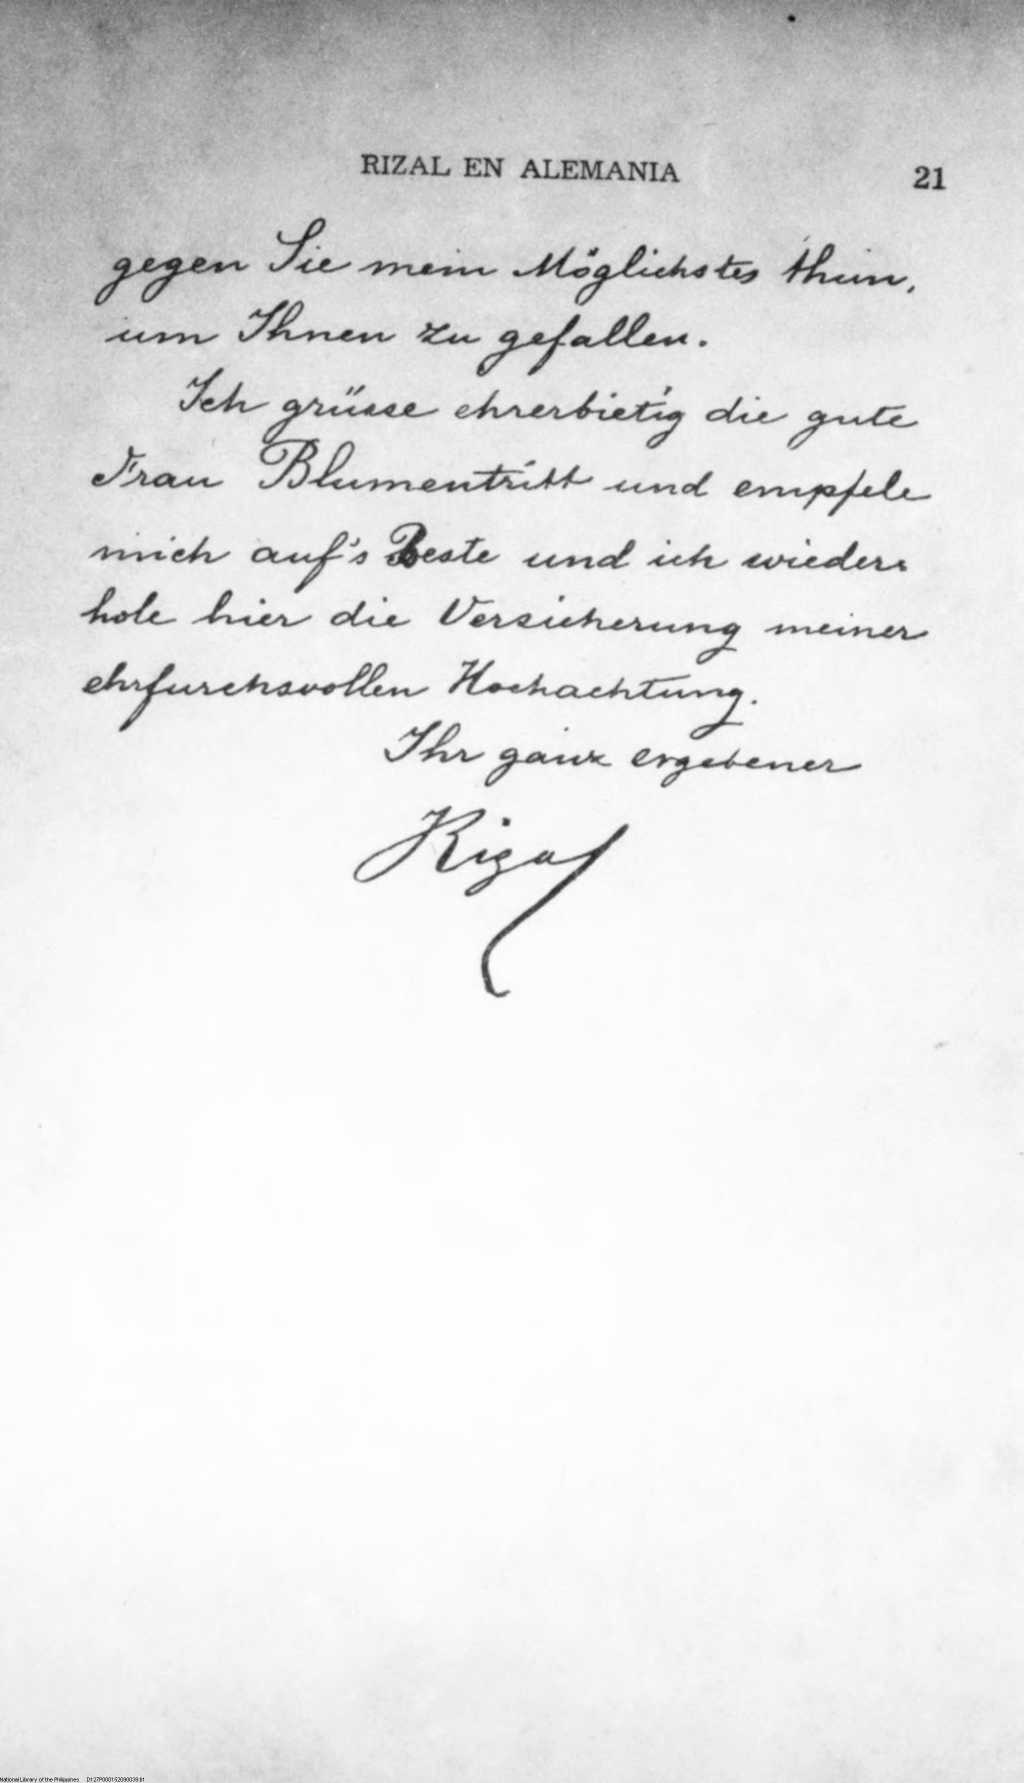 RIZAL EN ALEMANIA 21
gegen Sie mein Möglichstes thun,
um Ihnen zu gefallen.
Ich grüsse ehrerbietig die gute
Frau Blumentritt und empfele
mich auf's Beste und ich wieder-
hole hier die Versicherung meiner
ehrfurchsvollen Hochachtung.
Ihr ganz ergebener
Rizal
National Library of the Philippines